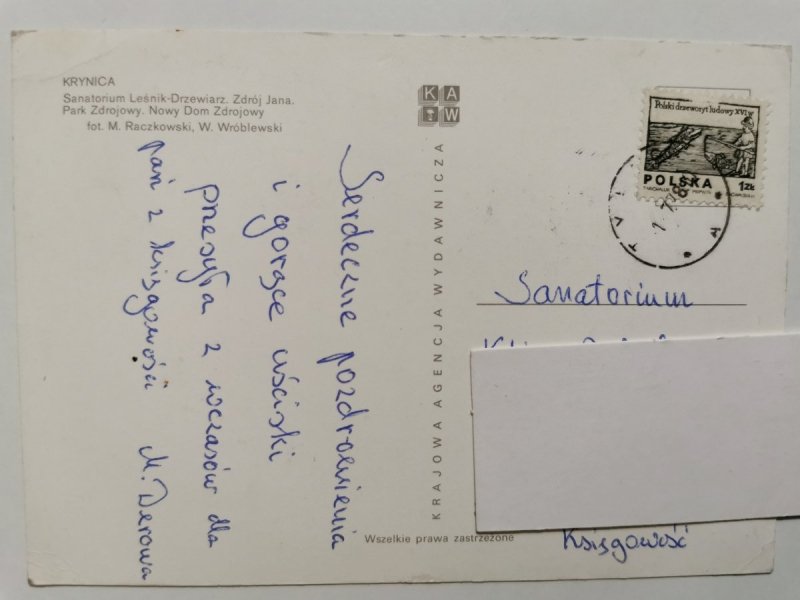 KRYNICA
Sanatorium Leśnik-Drzewiarz. Zdrój Jana.
Park Zdrojowy. Nowy Dom Zdrojowy
fot. M. Raczkowski, W. Wróblewski
KAW
KRAJOWA AGENCJA WYDAWNICZA
Serdeczne pozdrowienia
i gorące uściski
przesyła z wczasów dla
pań z księgowości M. Derowa
Polski drzeworyt ludowy XVI w
POLSKA 1ZŁ
Sanatorium
Księgowość
Wszelkie prawa zastrzeżone